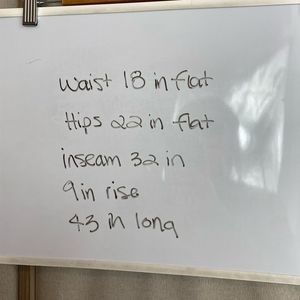 waist 18 in flat
Hips 22 in flat
inseam 32 in
9in rise
43 in long